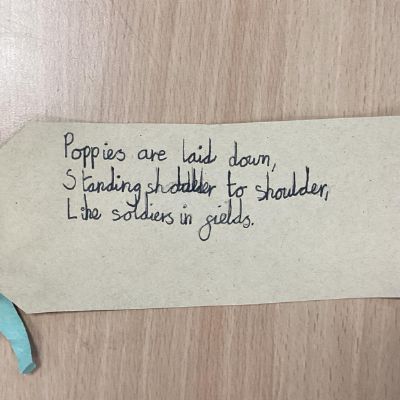 Poppies are laid down,
Standing shoulder to shoulder,
Like soldiers in fields.